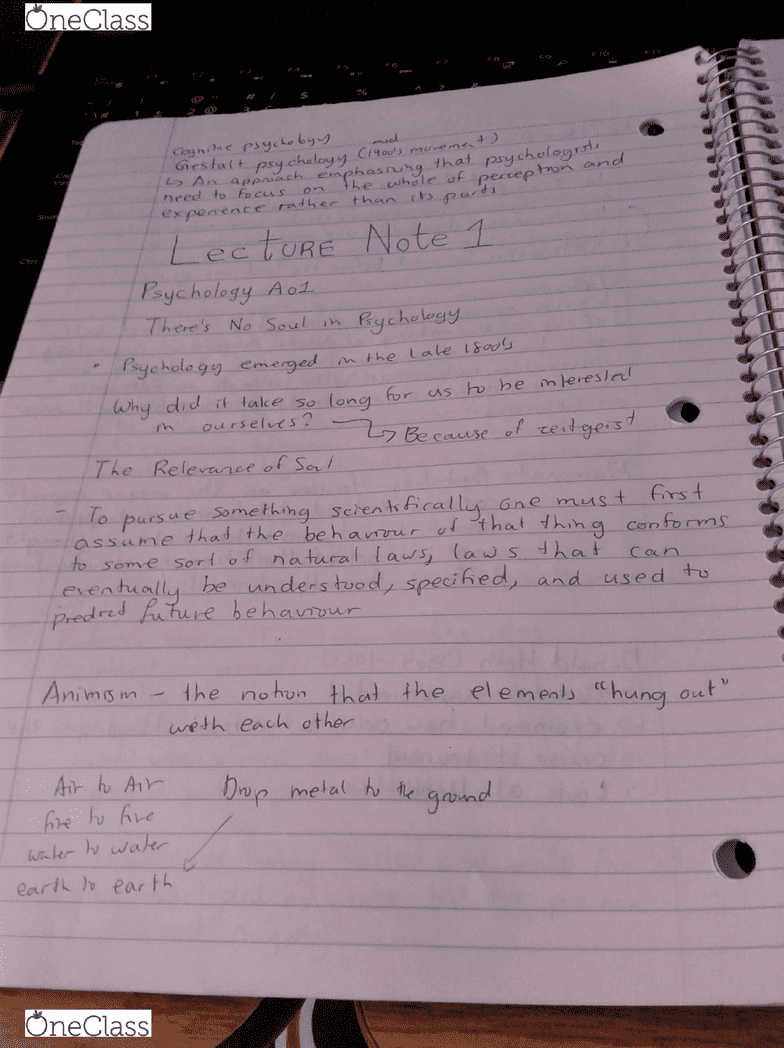 OneClass
Cognitive psychology
Gestalt psychology (mid 1900's movement)
↳ An approach emphasining that psychologists
need to focus on the whole of perception and
experience rather than its parts
LECTURE Note 1
Psychology A01
There's No Soul in Psychology
• Psychology emerged in the Late 1800's
Why did it take so long for us to be interested
in ourselves? → Because of zeitgeist
The Relevance of Soul
- To pursue something scientifically one must first
assume that the behaviour of that thing conforms
to some sort of natural laws, laws that can
eventually be understood, specified, and used to
predict future behaviour
Animism - the notion that the elements "hung out"
with each other
Air to Air
Drop metal to the ground
fire to fire
water to water
earth to earth
OneClass